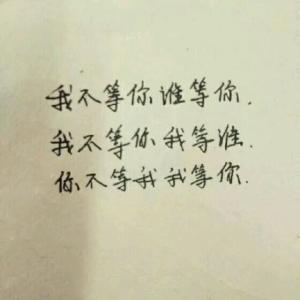 我不等你谁等你.
我不等你我等谁.
你不等我我等你.